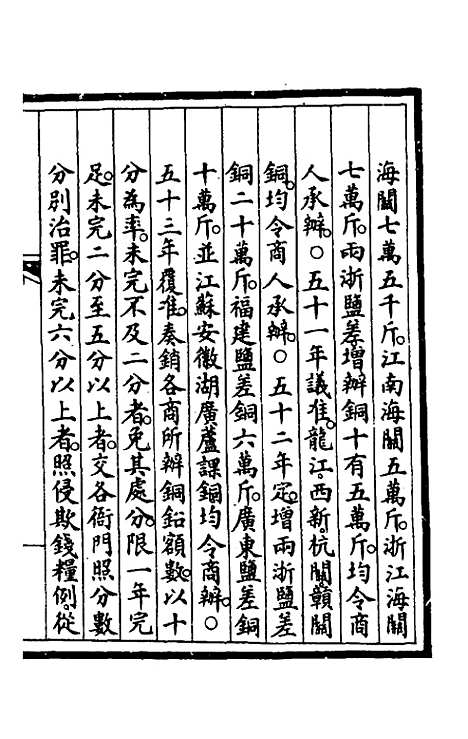 海關七萬五千斤。江南海關五萬斤。浙江海關
七萬斤。兩浙鹽差增辦銅十有五萬斤。均令商
人承辦。○五十一年議准。龍江。西新。杭關。贛關
銅。均令商人承辦。○五十二年定。增兩浙鹽差
銅二十萬斤。福建鹽差銅六萬斤。廣東鹽差銅
十萬斤。並江蘇安徽湖廣蘆課銅。均令商辦。○
五十三年覆准。奏銷各商所辦銅鉛額數。以十
分為率。未完不及二分者。免其處分。限一年完
足。未完二分至五分以上者。交各衙門照分數
分別治罪。未完六分以上者。照侵欺錢糧例。從